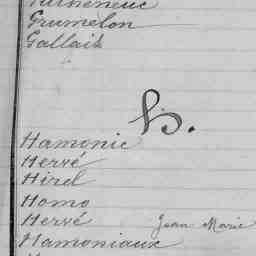 Grumelon
Gallais
H.
Hamonic
Hervé
Hirel
Homo
Hervé Jean Marie
Hamoniaux